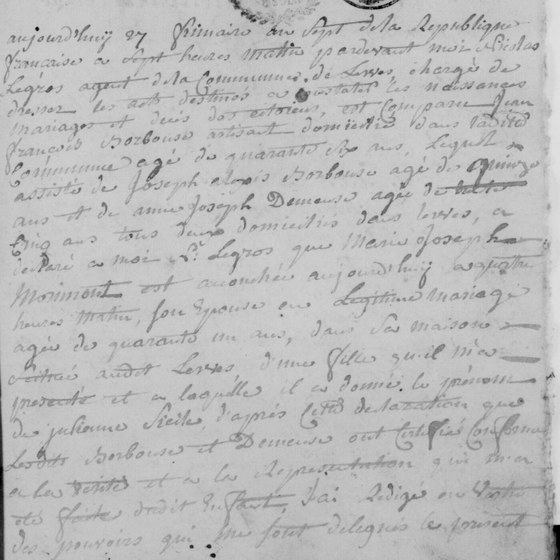 aujourd'huy 27 frimaire an sept de la Republique
francaise a sept heures matin pardevant moi Nicolas
Legros agent de la Commune de Lerves chargé de
dresser les acts destinés a constater les naissances
mariages et decés des citoiens, est Comparu jean
françois Borbouse artisant domicilié dans ladite
Commune agé de quarante six ans, Lequel
assisté de Joseph alexis Borbouse agé de quinze
ans et de anne Joseph Demeuse agée de
cinq ans tous deux domiciliés dans Lerves, a
declaré a moi N. Legros que Marie Joseph
Morimont est accouchée aujourd'huy a quatre
heures matin, son Epouse en Legitime mariage
agée de quarante un ans, dans sa maison
située audit Lerves d'une fille qu'il m'a
presenté et a laquelle il a donné le prénom
de julienne Sicile d'après Cette declaration que
Lesdits Borbouse et Demeuse ont Certifié Conforme
a la verité et a la Representation qui m'a
été faite dudit Enfant, J'ai Redigé en vertu
des pouvoirs qui me sont delegués le present